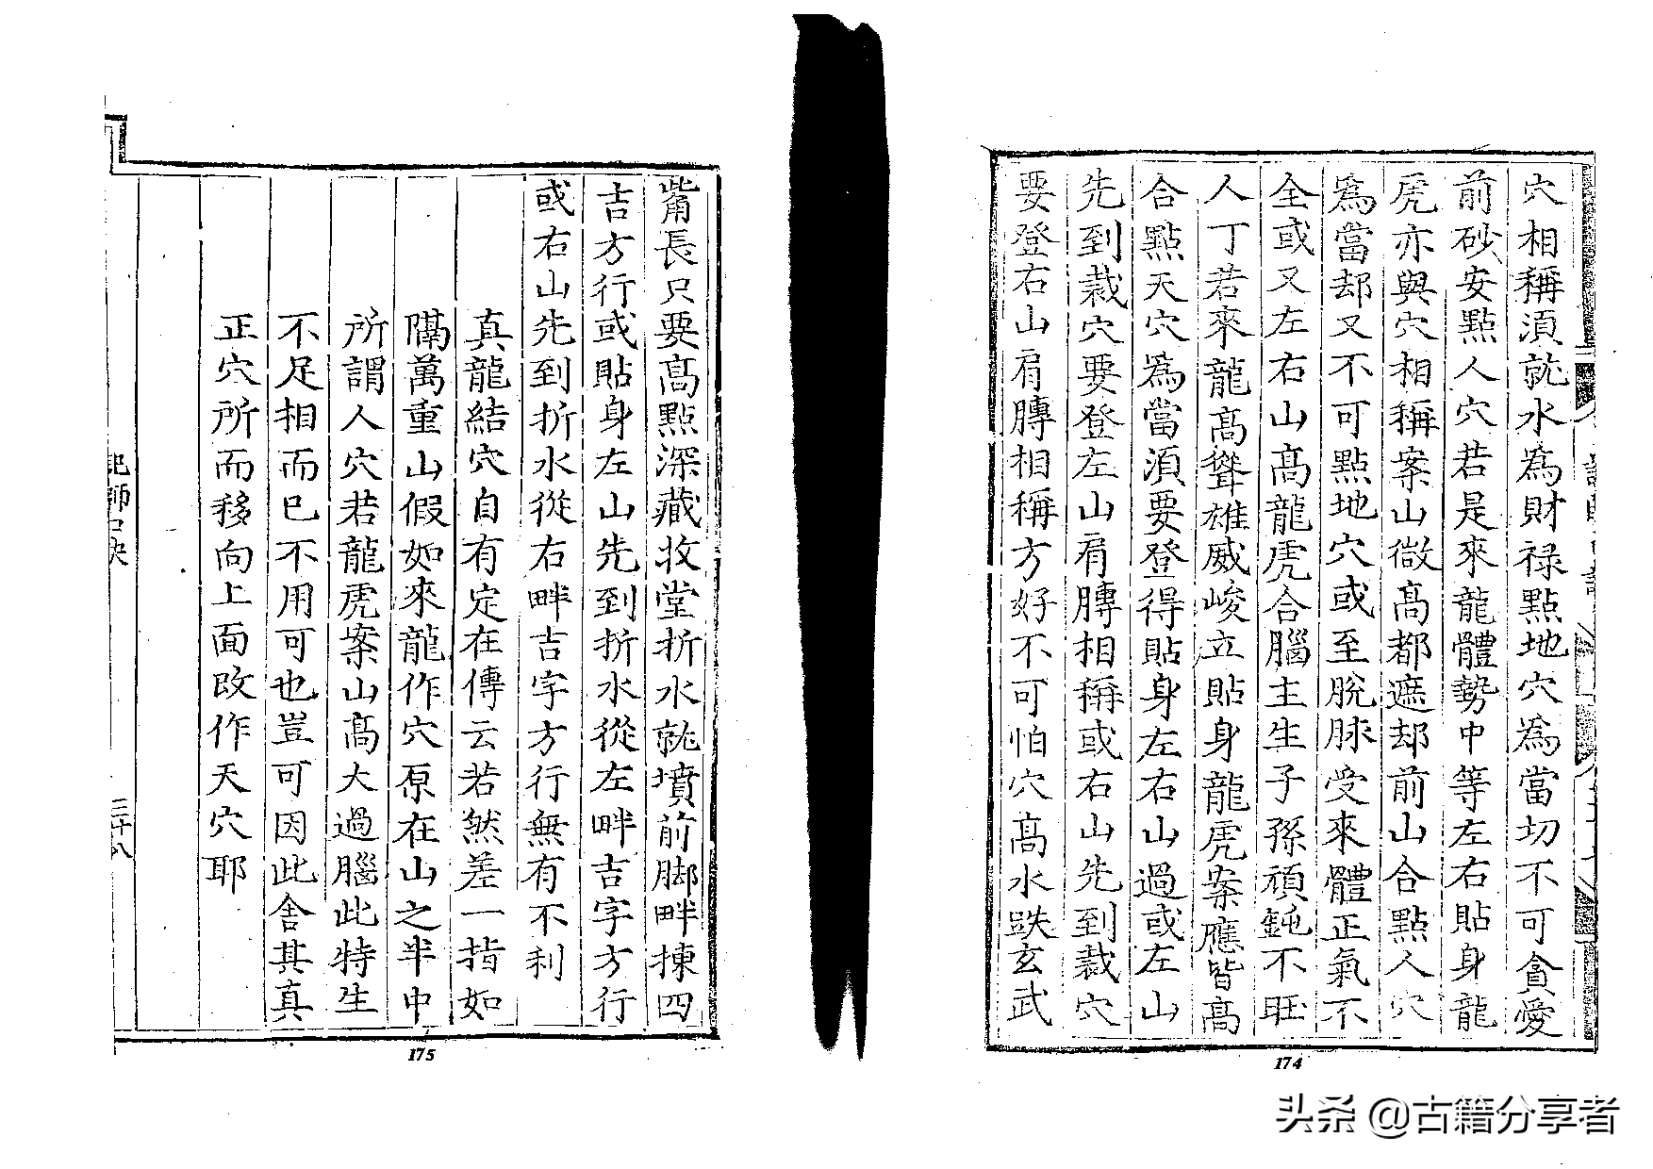 穴相稱須就水為財祿點地穴為當切不可貪愛
前砂安點人穴若是來龍體勢中等左右貼身龍
虎亦與穴相稱案山微高都遮却前山合點人穴
為當却又不可點地穴或至脫脉受來體正氣不
全或又左右山高龍虎合腦主生子孫頑鈍不旺
人丁若來龍高聳雄威峻立貼身龍虎案應皆高
合點天穴為當須要登得貼身左右山過或左山
先到裁穴要登左山肩膞相稱或右山先到裁穴
要登右山肩膞相稱方好不可怕穴高水跌玄武
觜長只要高點深藏收堂折水就墳前脚畔揀四
吉方行或貼身左山先到折水從左畔吉字方行
或右山先到折水從右畔吉字方行無有不利
真龍結穴自有定在傳云若然差一指如
隔萬重山假如來龍作穴原在山之半中
所謂人穴若龍虎案山高大過腦此特生
不足相而已不用可也豈可因此舍其真
正穴所而移向上面改作天穴耶
三十八
175
174
头条 @古籍分享者